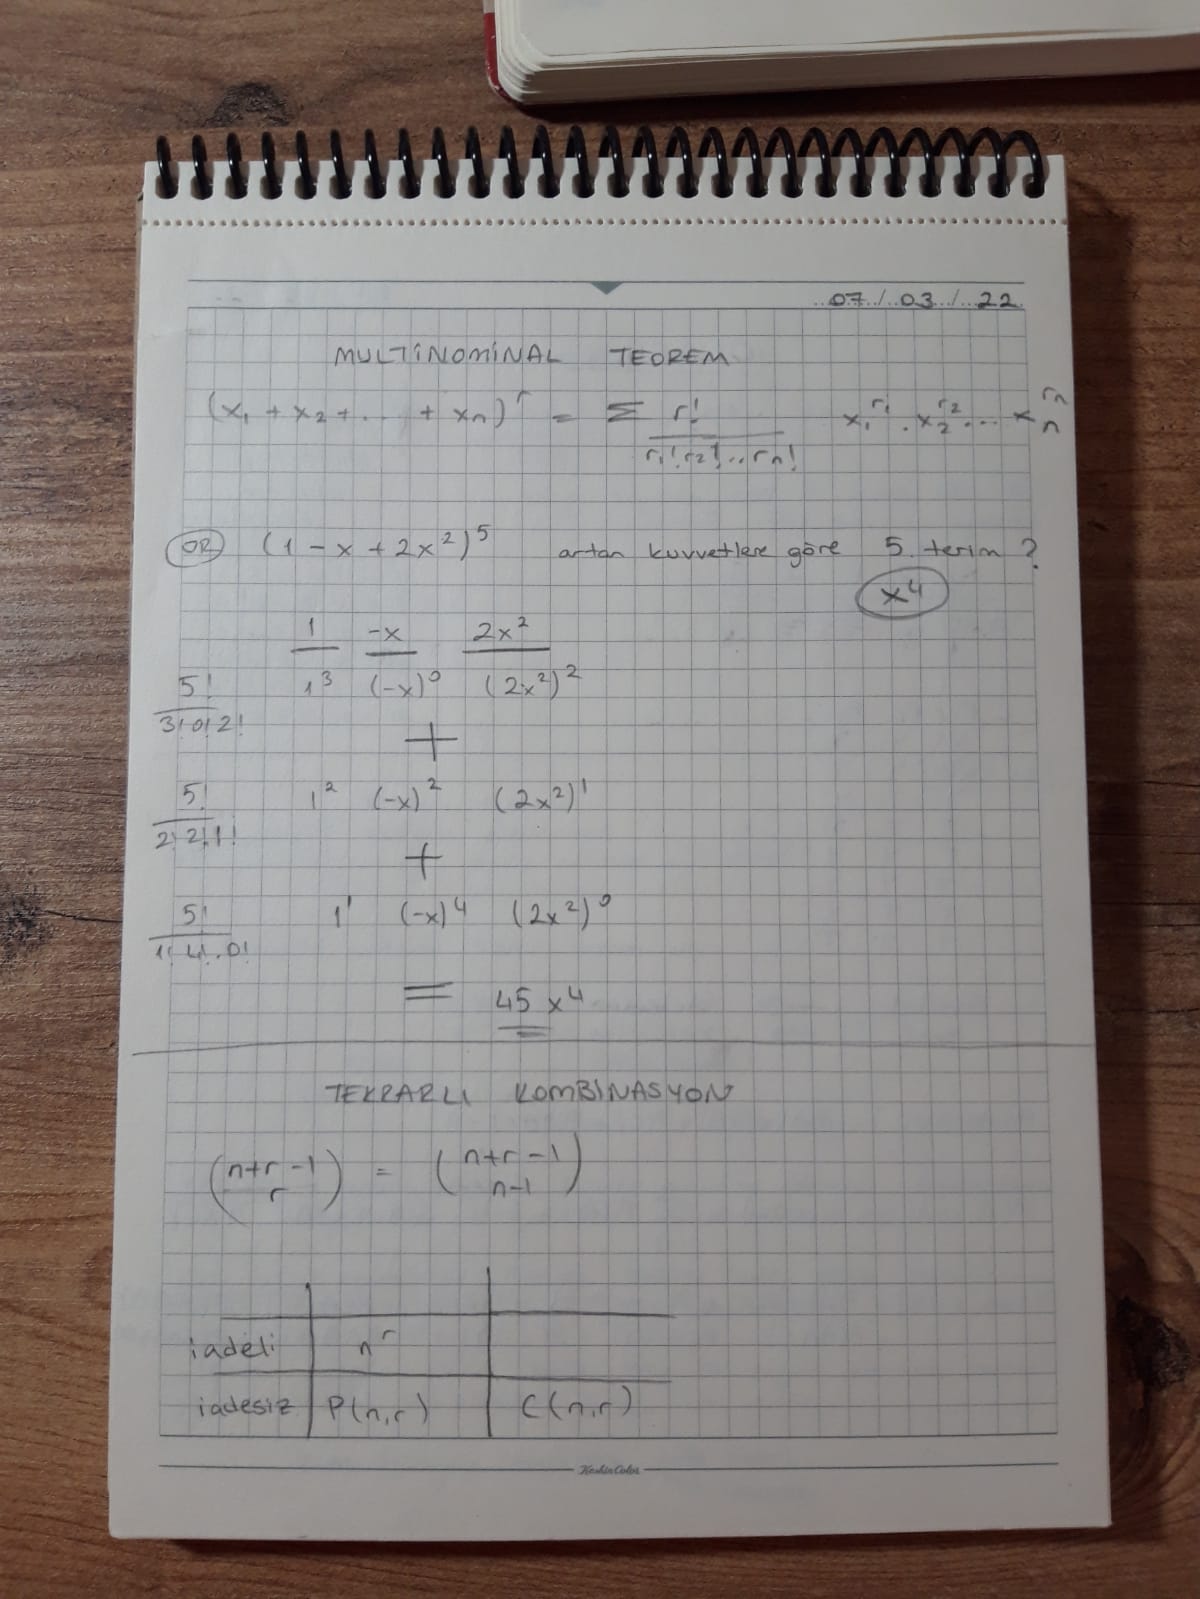 07/03/22
MULTİNOMİNAL TEOREM
(x₁ + x₂ + ... + xₙ)ʳ = Σ r! / (r₁! r₂! .. rₙ!) x₁^r₁ . x₂^r₂ ... xₙ^rₙ
ÖR (1 - x + 2x²)⁵ artan kuvvetlere göre 5. terim ?
x⁴
1 -x 2x²
5! / (3! 0! 2!) 1³ (-x)⁰ (2x²)²
+
5! / (2! 2! 1!) 1² (-x)² (2x²)¹
+
5! / (1! 4! . 0!) 1¹ (-x)⁴ (2x²)⁰
= 45 x⁴
TEKRARLI KOMBİNASYON
(n+r-1 / r) = (n+r-1 / n-1)
iadeli nʳ
iadesiz P(n,r) C(n,r)
KeskinColor